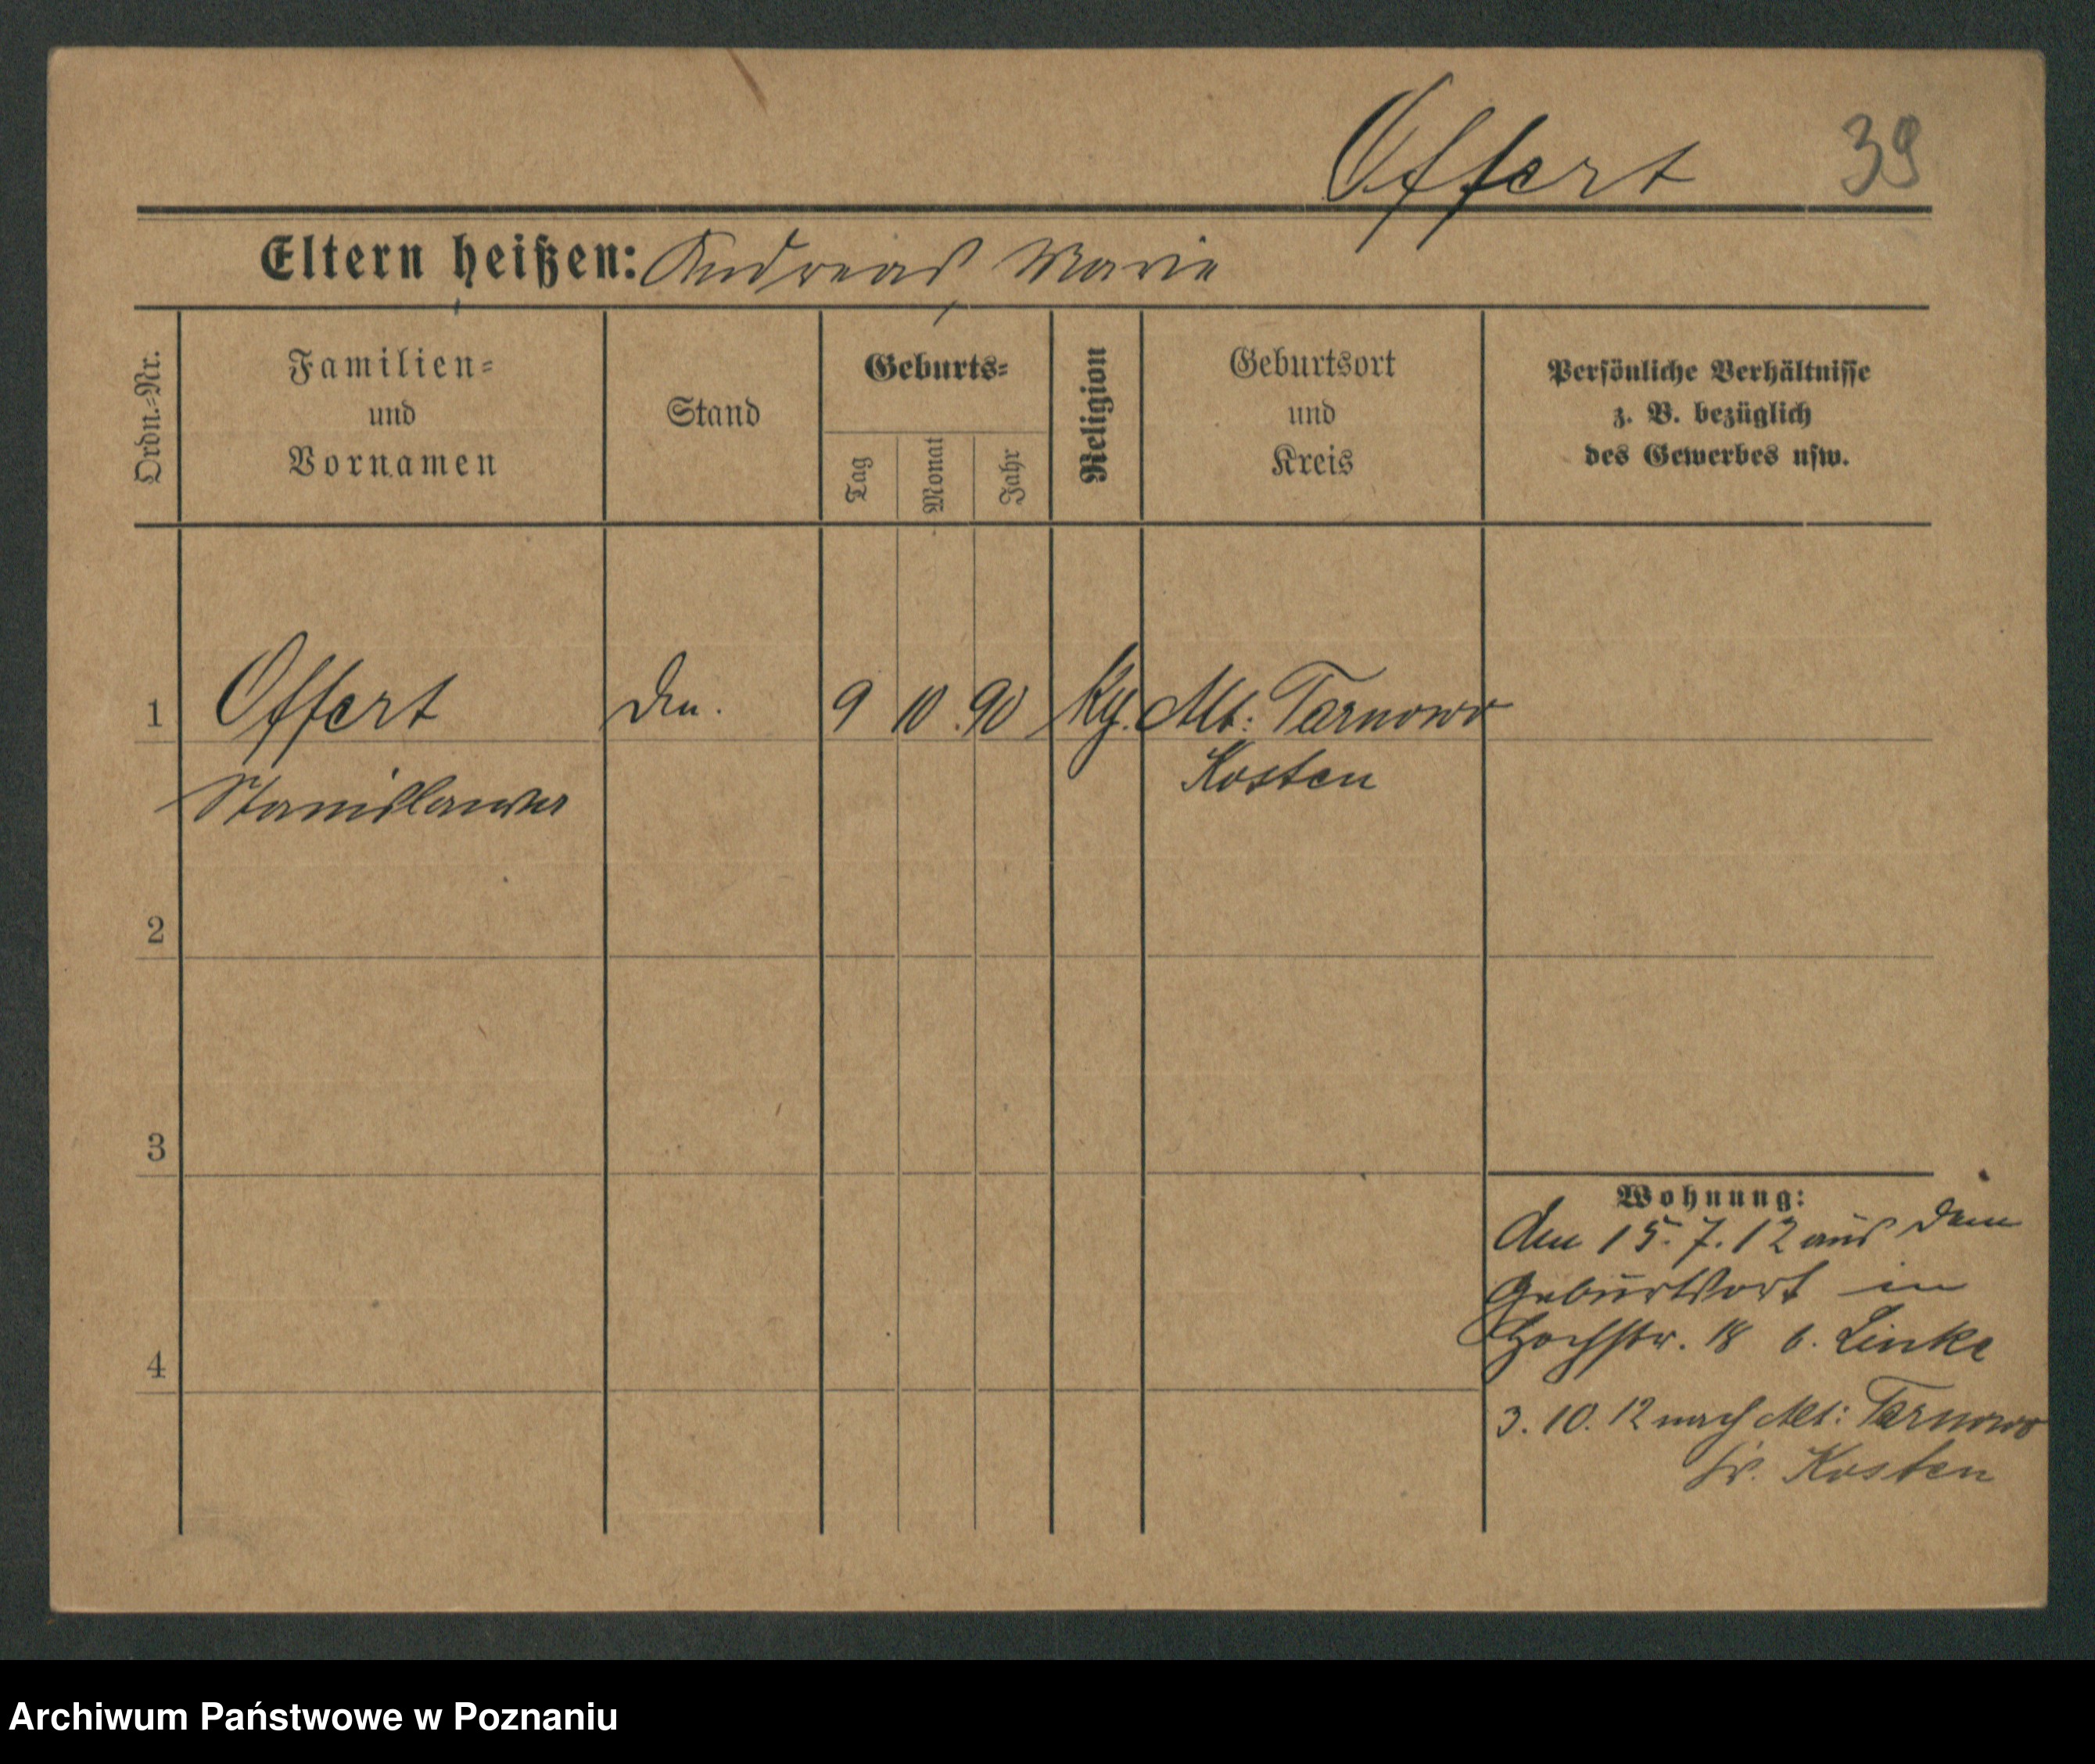 Offert 39
Eltern heißen: Andreas, Marie
Ordn.-Nr.
Familien-
und
Vornamen
Stand
Geburts-
Tag
Monat
Jahr
Religion
Geburtsort
und
Kreis
Persönliche Verhältnisse
z. B. bezüglich
des Gewerbes usw.
1 Offert 9 10. 90 Alt: Tarnowo
Kosten
Stanislawa
2
3
4
Wohnung:
den 15. 7. 12 aus dem
Geburtsort in
Hochstr. 18 b. Linke
3. 10. 12 nach Alt: Tarnowo
Kr. Kosten
Archiwum Państwowe w Poznaniu